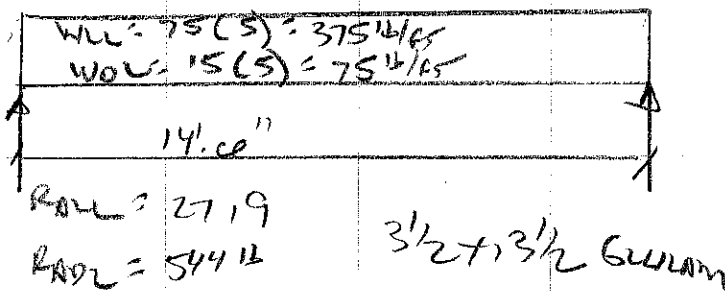 WLL = 75 (5) = 375 lb/ft
WDL = 15 (5) = 75 lb/ft
14'-6"
RALL = 2719
RADL = 544 lb
3 1/2 x 13 1/2 GLULAM